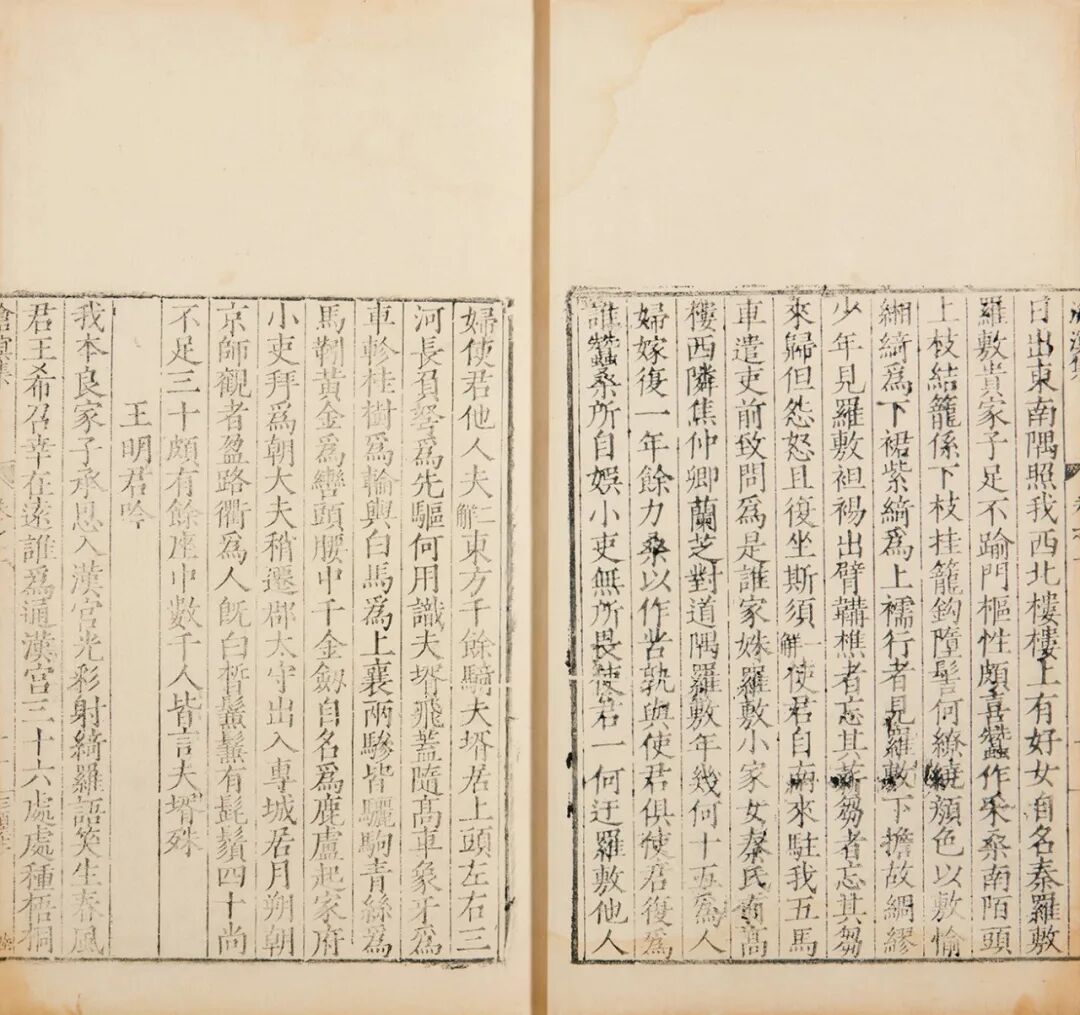 日出東南隅照我西北樓樓上有好女自名秦羅敷
羅敷貴家子足不踰門樞性頗喜蠶作采桑南陌頭
上枝結籠係下枝挂籠鈎墮髻何繚繞顏色以敷愉
緗綺爲下裙紫綺爲上襦行者見羅敷下擔故綢繆
少年見羅敷袒裼出臂韝樵者忘其薪芻者忘其芻
來歸但怨怒且復坐斯須一解使君自南來駐我五馬
車遣吏前致問爲是誰家姝羅敷小家女秦氏有高
樓西隣焦仲卿蘭芝對道隅羅敷年幾何十五爲人
婦嫁復一年餘力桑以作苦孰與使君俱使君復爲
誰蠶桑所自娛小吏無所畏使君一何迂羅敷他人
婦使君他人夫二解東方千餘騎夫壻居上頭左右三
河長負弩爲先驅何用識夫壻飛蓋隨高車象牙爲
車軫桂樹爲輪輿白馬爲上襄兩驂皆驪駒青絲爲
馬靷黃金爲轡頭腰中千金劔自名爲鹿盧起家府
小吏拜爲朝大夫稍遷郡太守出入專城居月朔朝
京師觀者盈路衢爲人旣白晳鬑鬑有髭鬚四十尚
不足三十頗有餘座中數千人皆言夫壻殊
王明君吟
我本良家子承恩入漢宮光彩射綺羅語笑生春風
君王希召幸在遠誰爲通漢宮三十六處處種梧桐
滄溟集